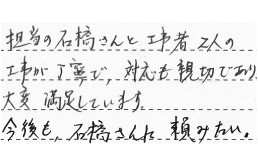 担当の石橋さんと工事者2人の
工事が丁寧で、対応も親切であり
大変満足しています。
今後も、石橋さんに頼みたい。